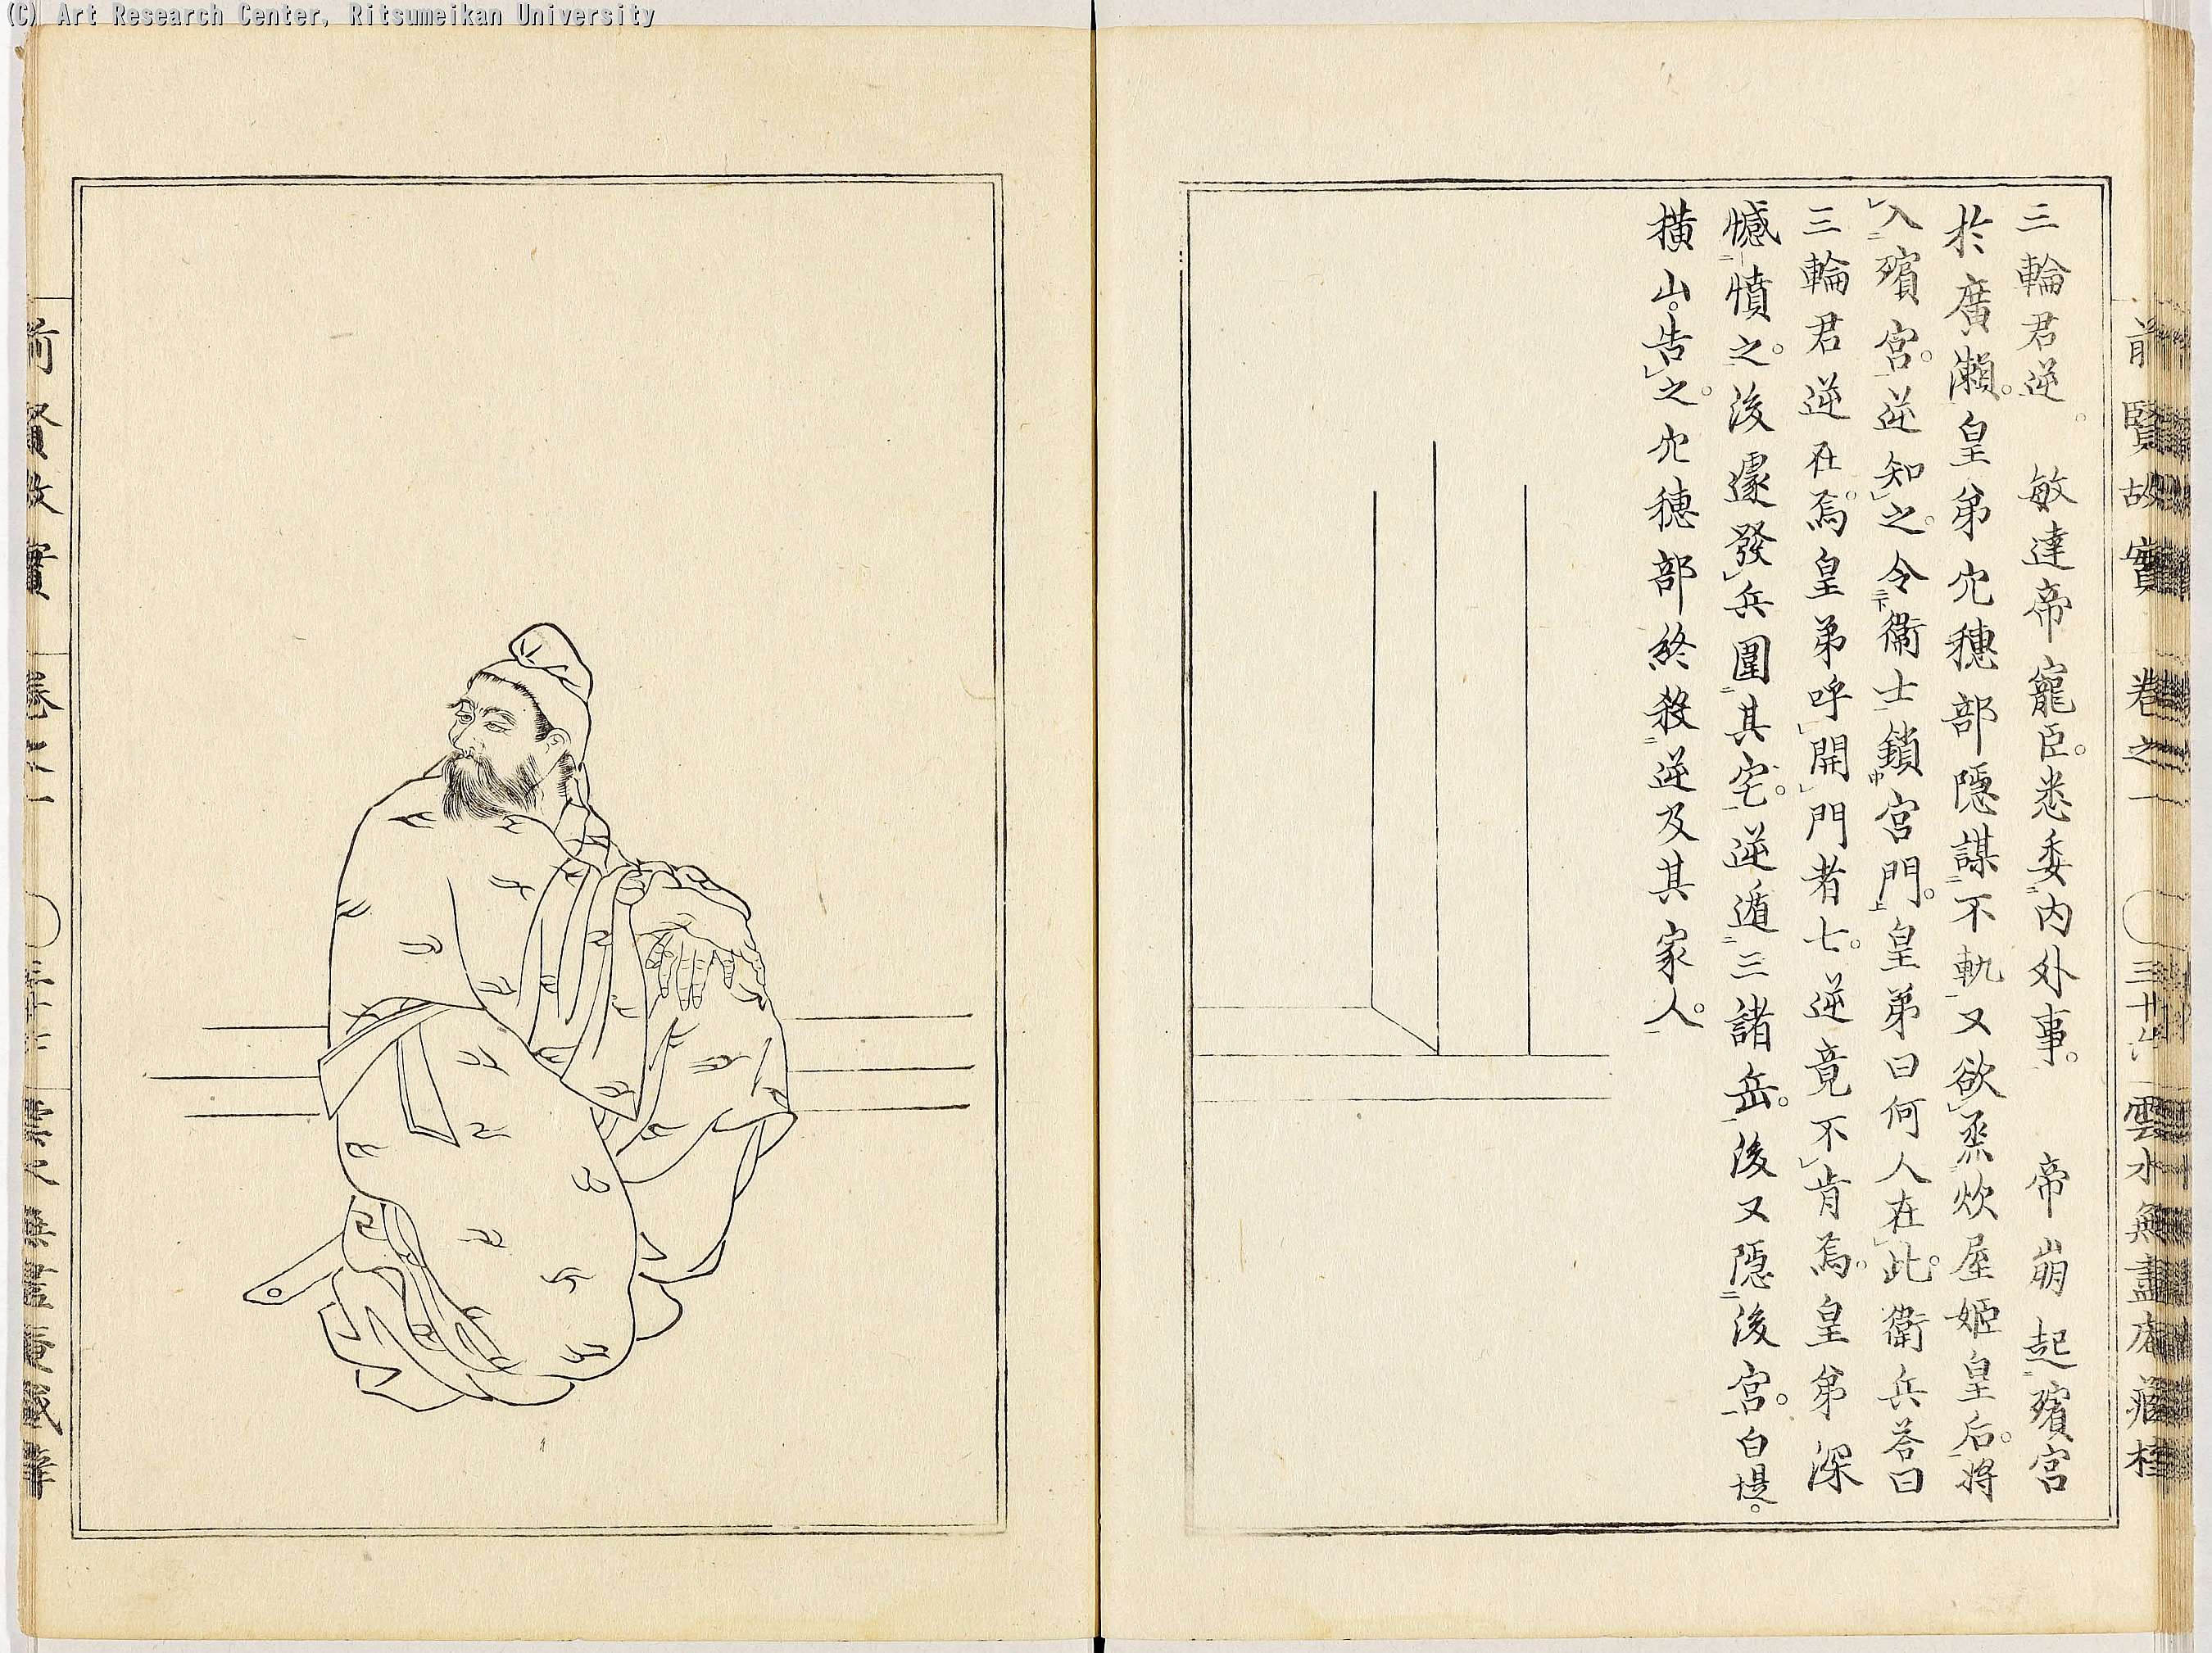 (C) Art Research Center, Ritsumeikan University
前賢故實 卷之一 雲水無盡庵藏
三輪君逆。 敏達帝寵臣。悉委二内外事一。 帝崩起二殯宮
於廣瀨一。皇弟穴穗部隱謀二不軌一又欲レ烝炊屋姬皇后。將
レ入二殯宮一。逆知レ之。令三下衞士鎖中宮門上。皇弟曰何人在レ此。衞兵答曰
三輪君逆在焉。皇弟呼レ開レ門者七。逆竟不レ肯焉。皇弟深
憾二憤之一。後遽發レ兵圍二其宅一。逆遁二三諸岳一。後又隱二後宮一。白堤。
橫山。告レ之。穴穗部終殺二逆及其家人一。
前賢故實 卷之一 雲水無盡庵藏